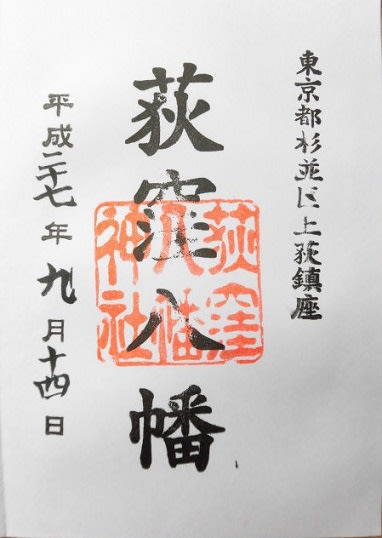 東京都杉並区上荻鎮座
荻窪八幡
荻窪
八幡
神社
平成二十七年九月十四日